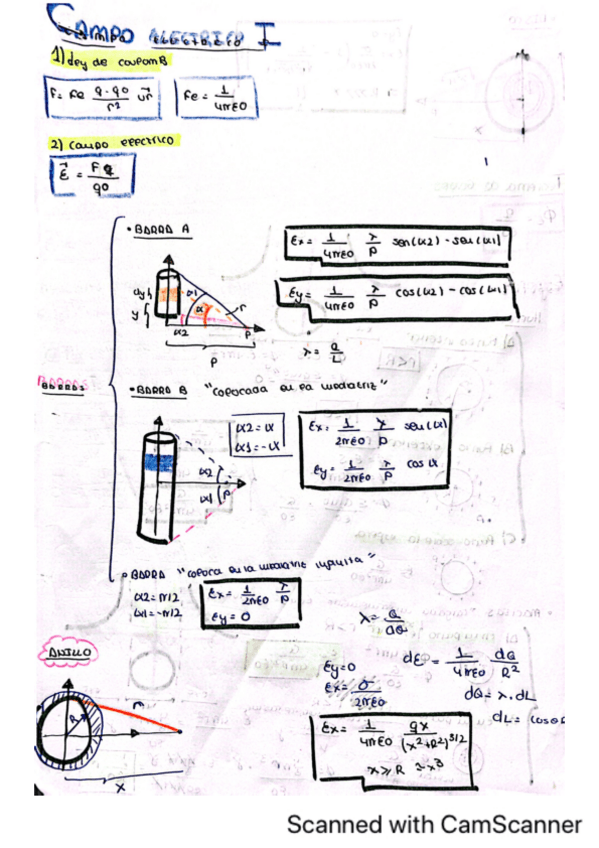 CAMPO ELECTRICO I
1) Ley de coulomB
F= Fe q·q0/r² ur   Fe = 1/4πε0
2) campo electrico
E = Fq/q0
• BARRA A
Ex= 1/4πε0 λ/P sen(α2) - sen(α1)
Ey= 1/4πε0 λ/P cos(α2) - cos(α1)
dy
α1
y
α
r
α2
P
P
λ = Q/L
BARRAS
• BARRA B "colocada en la mediatriz"
α2 = α
α1 = -α
Ex= 1/2πε0 λ/P sen(α)
Ey= 1/2πε0 λ/P cos α
α2
α1
P
• BARRA "coloca en la mediatriz infinita"
α2 = π/2
α1 = -π/2
Ex= 1/2πε0 λ/P
Ey = 0
λ = Q/dQ
ANILLO
Ey=0
Ex= σ/2πε0
dE = 1/4πε0 dQ/R²
dQ = λ.dL
r
R
x
Ex= 1/4πε0 qx/(x²+R²)3/2
x≫R ≈x³
Scanned with CamScanner